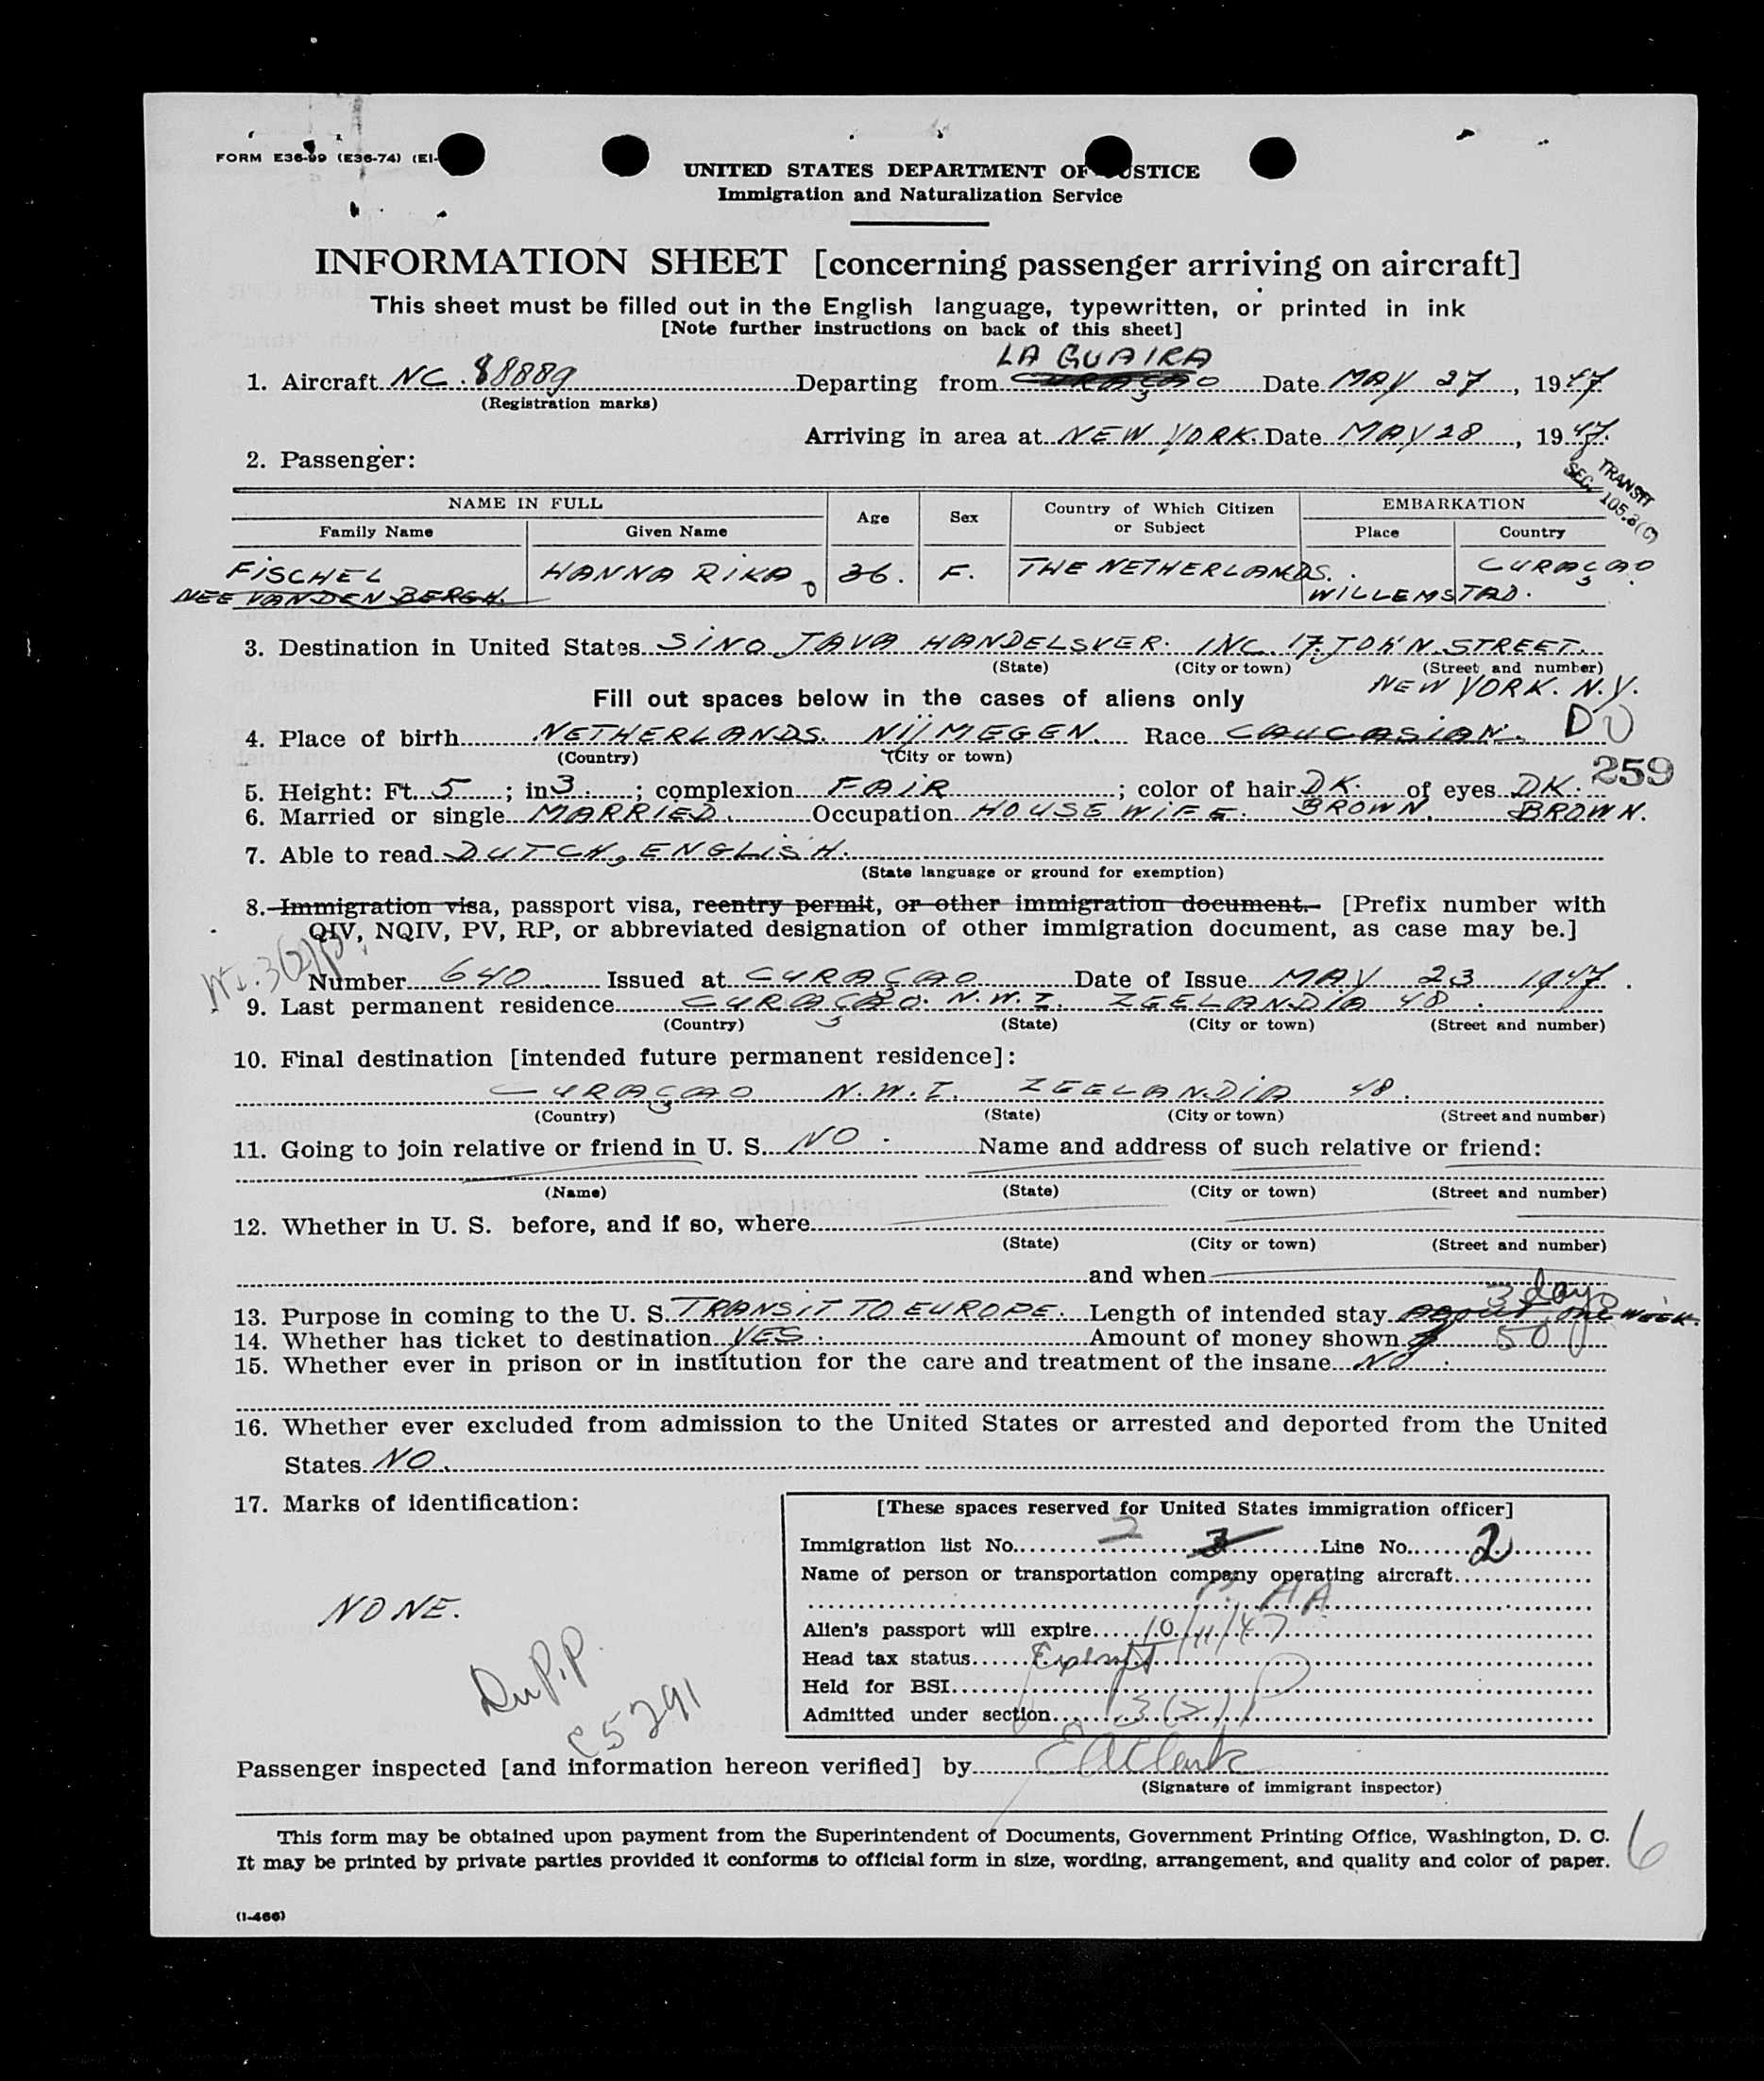 FORM E36-99 (E36-74) (EI-
UNITED STATES DEPARTMENT OF JUSTICE
Immigration and Naturalization Service
INFORMATION SHEET [concerning passenger arriving on aircraft]
This sheet must be filled out in the English language, typewritten, or printed in ink
[Note further instructions on back of this sheet]
LA GUAIRA
1. Aircraft NC. 88889 Departing from CURAÇAO Date MAY 27, 1947
(Registration marks)
Arriving in area at NEW YORK. Date MAY 28, 1947.
2. Passenger:
TRANSIT
SEC. 105.3(C)
NAME IN FULL Age Sex Country of Which Citizen or Subject EMBARKATION
Family Name Given Name Place Country
FISCHEL HANNA RIKA 36. F. THE NETHERLANDS. CURAÇAO.
NEE VAN DEN BERGH. WILLEMSTAD.
3. Destination in United States SINO JAVA HANDELSVER. INC. 17. JOHN STREET.
(State) (City or town) (Street and number)
NEW YORK. N.Y.
Fill out spaces below in the cases of aliens only
4. Place of birth NETHERLANDS. NIJMEGEN. Race CAUCASIAN. DU
(Country) (City or town)
259
5. Height: Ft. 5; in 3.; complexion FAIR; color of hair DK. of eyes DK.
6. Married or single MARRIED. Occupation HOUSEWIFE. BROWN. BROWN.
7. Able to read DUTCH, ENGLISH.
(State language or ground for exemption)
8. Immigration visa, passport visa, reentry permit, or other immigration document. [Prefix number with
QIV, NQIV, PV, RP, or abbreviated designation of other immigration document, as case may be.]
3(2)
Number 640 Issued at CURAÇAO Date of Issue MAY 23 1947.
9. Last permanent residence CURAÇAO. N.W.I. ZEELANDIA 48.
(Country) (State) (City or town) (Street and number)
10. Final destination [intended future permanent residence]:
CURAÇAO N.W.I. ZEELANDIA 48.
(Country) (State) (City or town) (Street and number)
11. Going to join relative or friend in U. S. NO. Name and address of such relative or friend:
(Name) (State) (City or town) (Street and number)
12. Whether in U. S. before, and if so, where
(State) (City or town) (Street and number)
and when
3 days
13. Purpose in coming to the U. S. TRANSIT TO EUROPE. Length of intended stay ABOUT ONE WEEK.
14. Whether has ticket to destination YES. Amount of money shown $ 50
15. Whether ever in prison or in institution for the care and treatment of the insane NO.
16. Whether ever excluded from admission to the United States or arrested and deported from the United
States NO.
17. Marks of identification:
NONE.
Du P.P.
C5291
[These spaces reserved for United States immigration officer]
Immigration list No. 2 3 Line No. 2
Name of person or transportation company operating aircraft
P. AA
Alien's passport will expire 10/11/47
Head tax status Exempt
Held for BSI
Admitted under section 3(2) P
Passenger inspected [and information hereon verified] by EAClark
(Signature of immigrant inspector)
This form may be obtained upon payment from the Superintendent of Documents, Government Printing Office, Washington, D. C.
It may be printed by private parties provided it conforms to official form in size, wording, arrangement, and quality and color of paper.
6
(I-466)